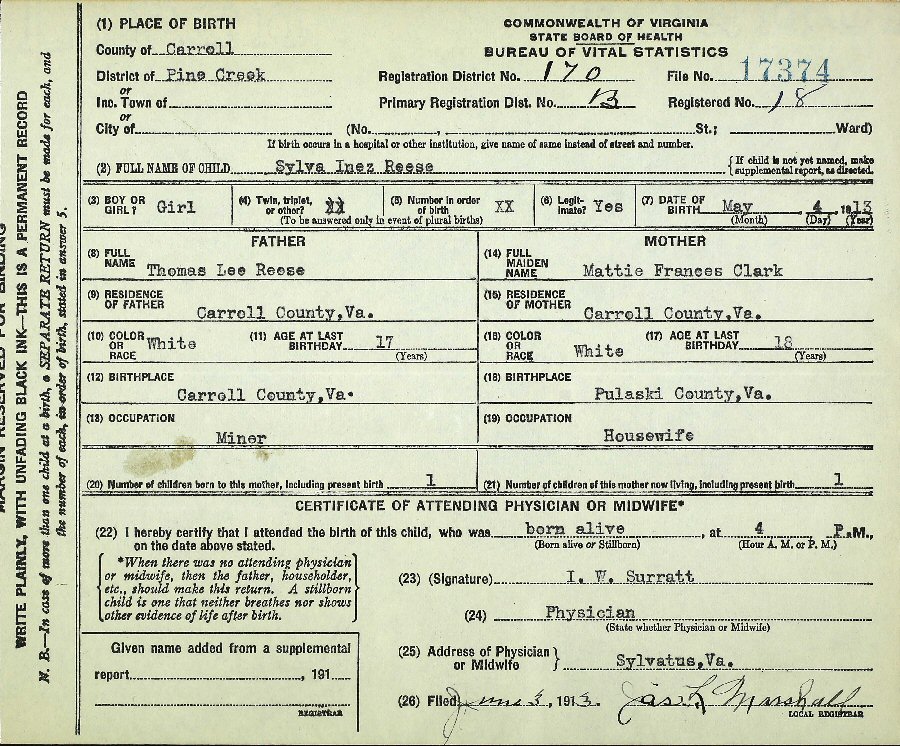 (1) PLACE OF BIRTH
County of Carroll
District of Pine Creek
or
Inc. Town of
or
City of
COMMONWEALTH OF VIRGINIA
STATE BOARD OF HEALTH
BUREAU OF VITAL STATISTICS
Registration District No. 170 File No. 17374
Primary Registration Dist. No. B Registered No. 18
(No. , St.; Ward)
If birth occurs in a hospital or other institution, give name of same instead of street and number.
(2) FULL NAME OF CHILD Sylva Inez Reese {If child is not yet named, make
supplemental report, as directed.
(3) BOY OR GIRL? Girl
(4) Twin, triplet, or other? XX
(5) Number in order of birth XX
(To be answered only in event of plural births)
(6) Legitimate? Yes
(7) DATE OF BIRTH May 4, 1913
(Month) (Day) (Year)
FATHER
(8) FULL NAME Thomas Lee Reese
(9) RESIDENCE OF FATHER Carroll County,Va.
(10) COLOR OR RACE White (11) AGE AT LAST BIRTHDAY 17
(Years)
(12) BIRTHPLACE
Carroll County,Va.
(13) OCCUPATION
Miner
(20) Number of children born to this mother, including present birth 1
MOTHER
(14) FULL MAIDEN NAME Mattie Frances Clark
(15) RESIDENCE OF MOTHER Carroll County,Va.
(16) COLOR OR RACE White (17) AGE AT LAST BIRTHDAY 18
(Years)
(18) BIRTHPLACE
Pulaski County,Va.
(19) OCCUPATION
Housewife
(21) Number of children of this mother now living, including present birth 1
CERTIFICATE OF ATTENDING PHYSICIAN OR MIDWIFE*
(22) I hereby certify that I attended the birth of this child, who was born alive, at 4 P.M.,
on the date above stated. (Born alive or Stillborn) (Hour A. M. or P. M.)
*When there was no attending physician
or midwife, then the father, householder,
etc., should make this return. A stillborn
child is one that neither breathes nor shows
other evidence of life after birth.
(23) (Signature) I. W. Surratt
(24) Physician
(State whether Physician or Midwife)
(25) Address of Physician or Midwife } Sylvatus,Va.
Given name added from a supplemental
report , 191
REGISTRAR
(26) Filed June 3, 1913. Jas L Marshall
LOCAL REGISTRAR
MARGIN RESERVED FOR BINDING
WRITE PLAINLY, WITH UNFADING BLACK INK—THIS IS A PERMANENT RECORD
N. B.—In case of more than one child at a birth, a SEPARATE RETURN must be made for each, and
the number of each, in order of birth, stated in answer 5.